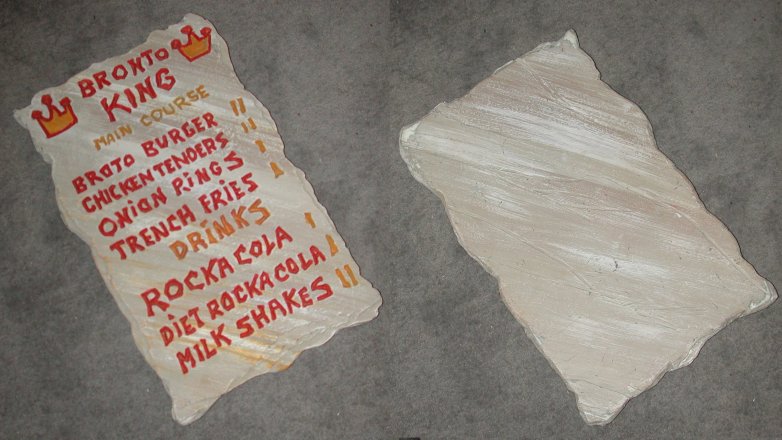 BRONTO
KING
MAIN COURSE
BROTO BURGER II
CHICKEN TENDERS II
ONION RINGS I
TRENCH FRIES I
DRINKS
ROCKA COLA I
DIET ROCKA COLA I
MILK SHAKES II